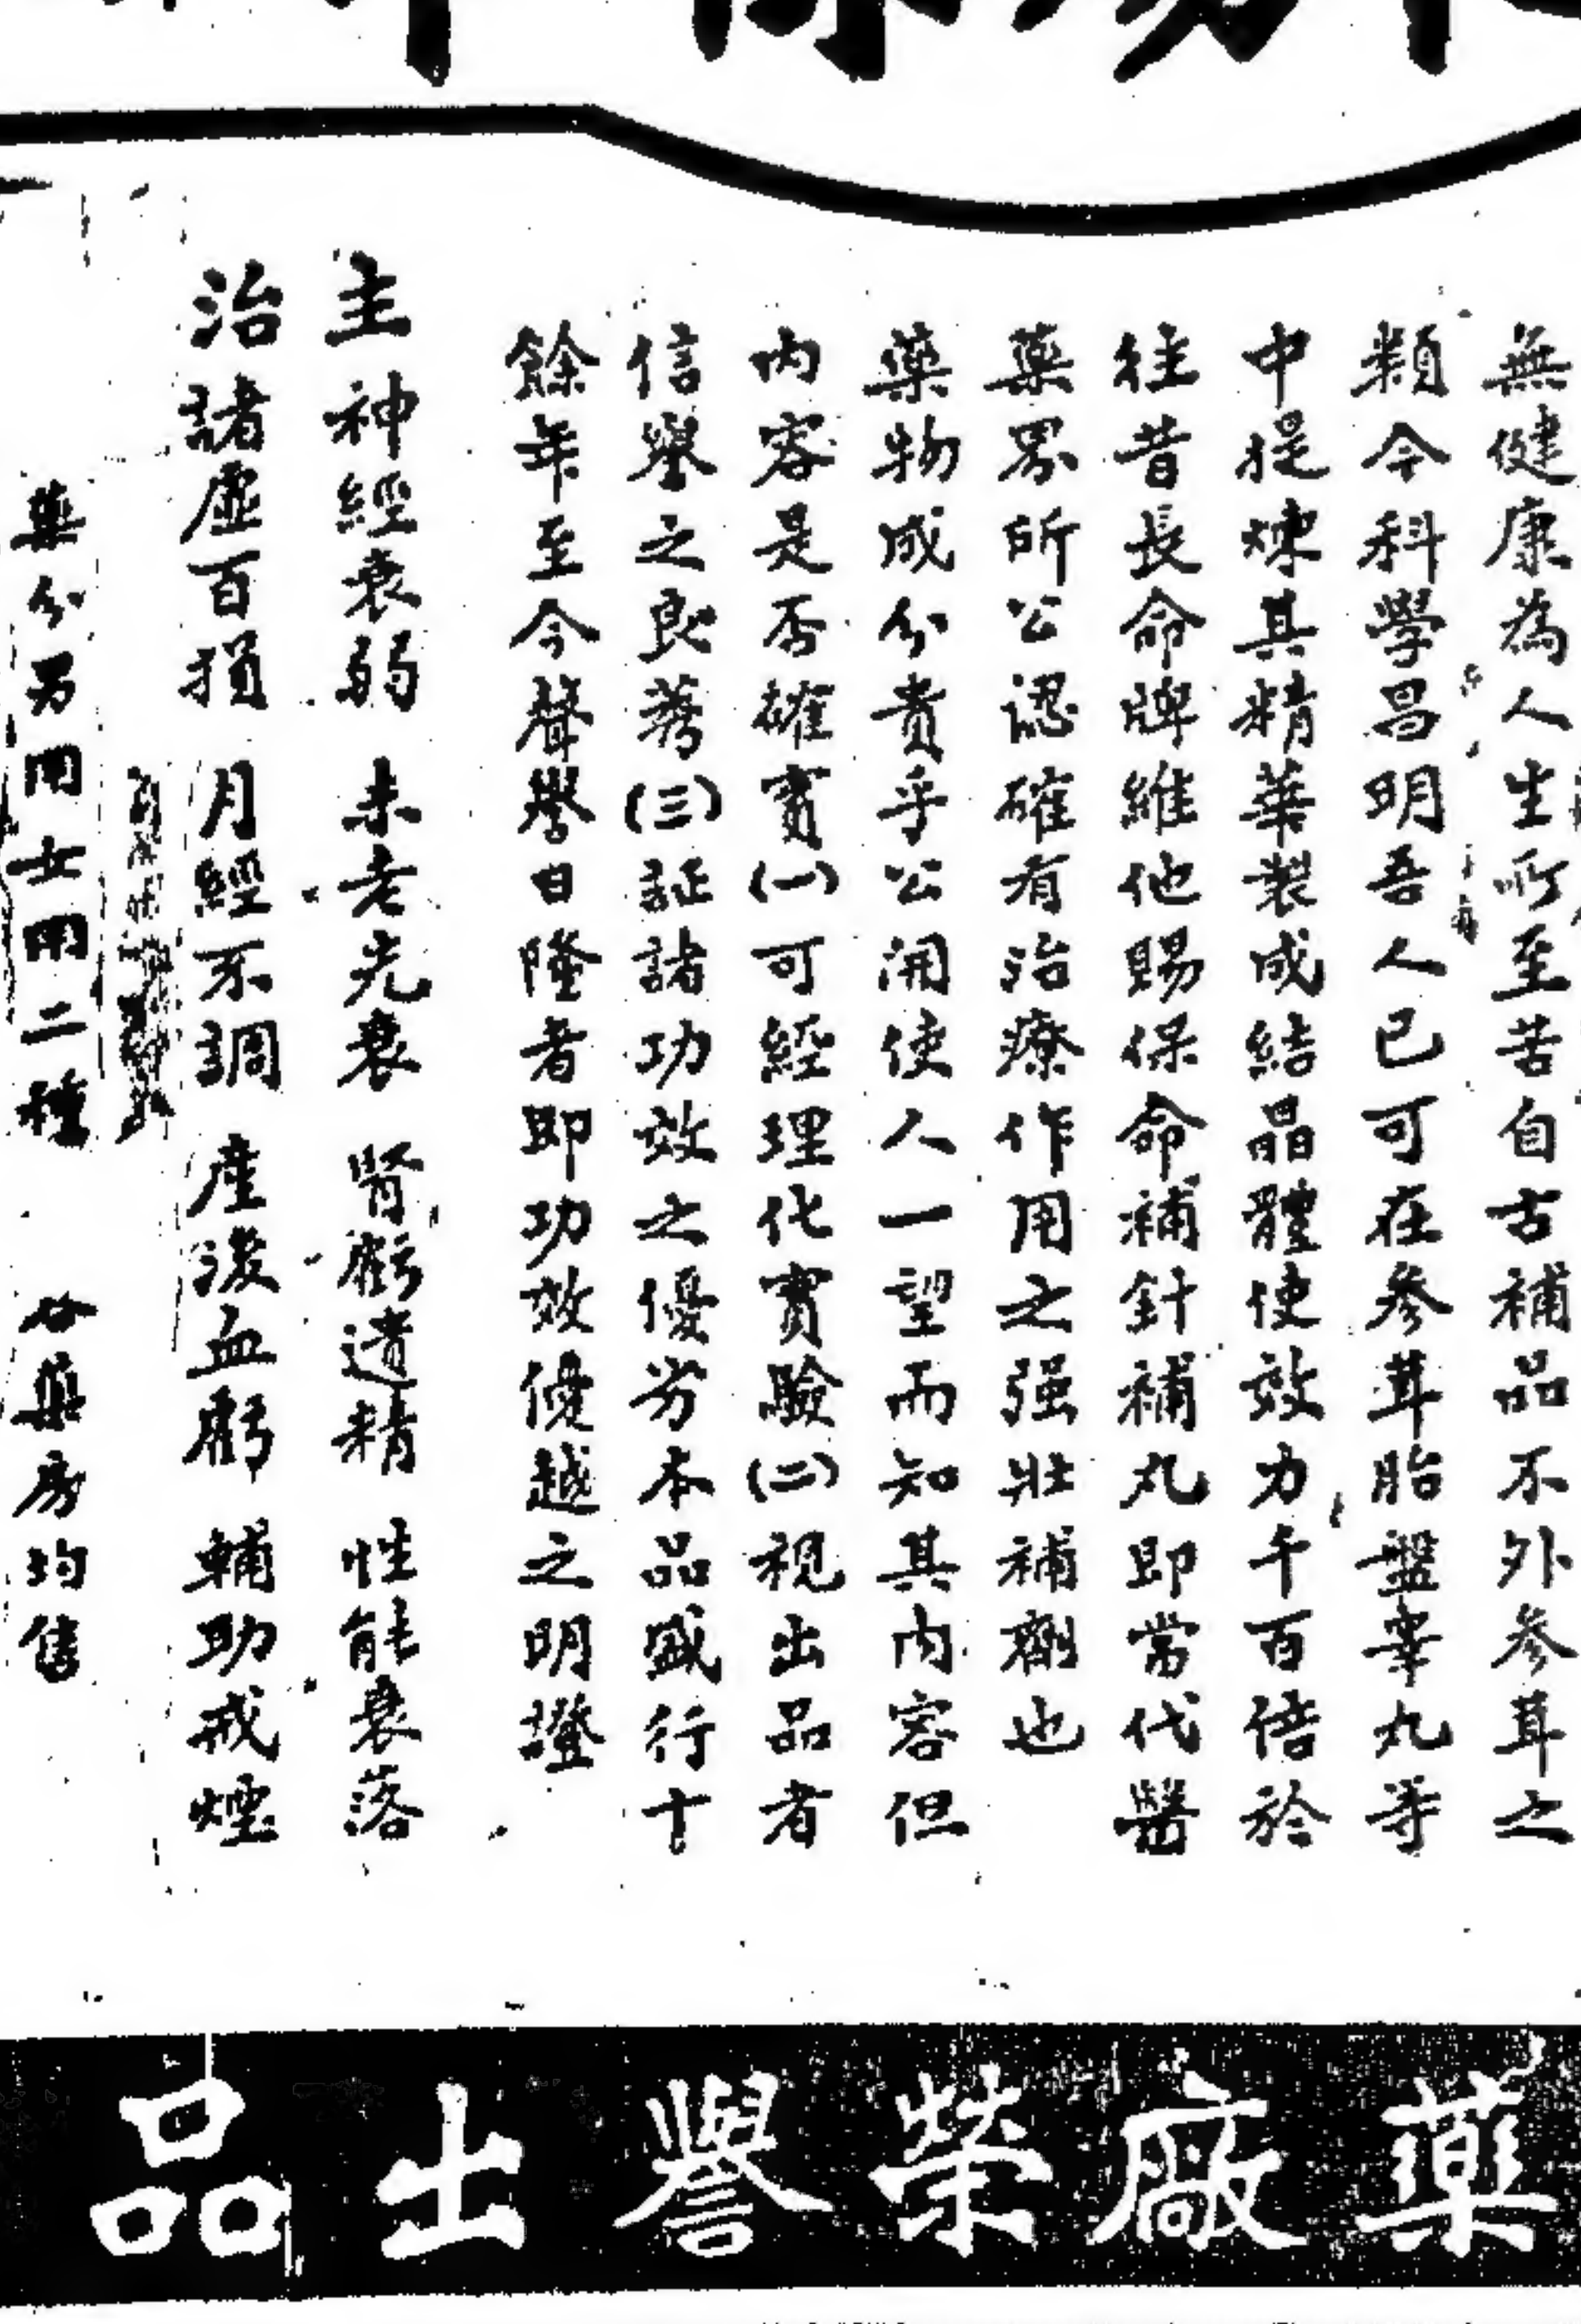 無健康為人生所至苦自古補品不外參茸之
類今科學昌明吾人已可在參茸胎盤睾丸等
中提煉其精華製成結晶體使效力千百倍於
往昔長命牌維他賜保命補針補丸即當代醫
藥界所公認確有治療作用之强壯補劑也
藥物成分貴乎公開使人一望而知其內容但
內容是否確實(一)可經理化實驗(二)視出品者
信譽之良莠(三)証諸功效之優劣本品盛行十
餘年至今聲譽日隆者即功效優越之明證
主 神經衰弱 未老先衰 腎虧遺精 性能衰落
治 諸虛百損 月經不調 產後血虧 輔助戒煙
藥分男用女用二種 各藥房均售
藥廠榮譽出品